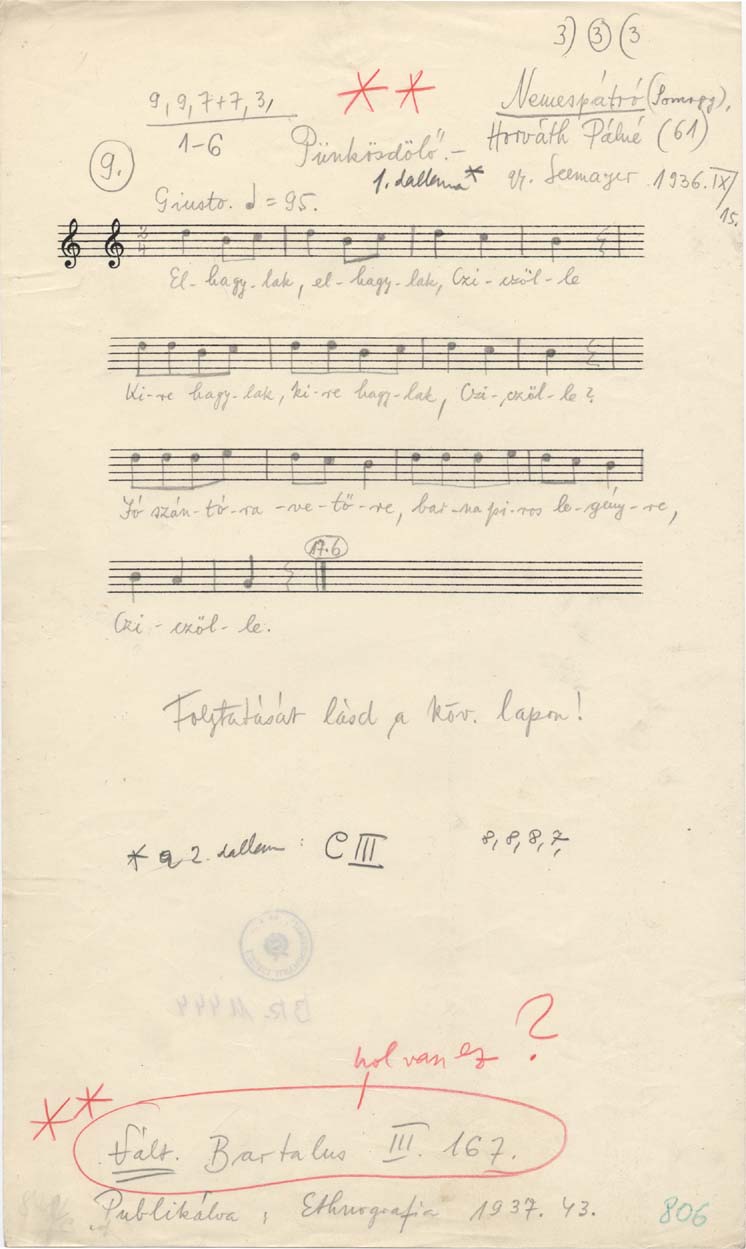 3) (3) (3
9, 9, 7+7, 3,
1-6
**
Nemespátró (Somogy),
9.
Pünkösdölő.-
Horváth Pálné (61)
1. dallama*
gy. Seemayer 1936. IX/15.
Giusto. ♩ = 95.
2/4
El-hagy-lak, el-hagy-lak, Czi-czöl-le
Ki-re hagy-lak, ki-re hagy-lak, Czi-czöl-le?
Jó szán-tó-ra -ve-tő-re, bar-na pi-ros le-gény-re,
17.6
Czi-czöl-le.
Folytatását lásd a köv. lapon!
* a 2. dallam: C III 8, 8, 8, 7,
BR. 11444
hol van ez ?
** Vált. Bartalus III. 167.
Publikálva, Ethnografia 1937. 43.
806